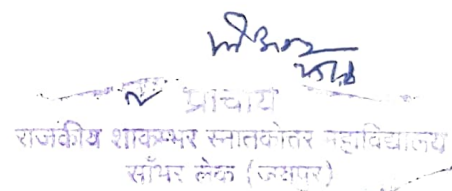 प्राचार्य
राजकीय शाकम्भर स्नातकोतर महाविद्यालय
साँभर लेक (जयपुर)